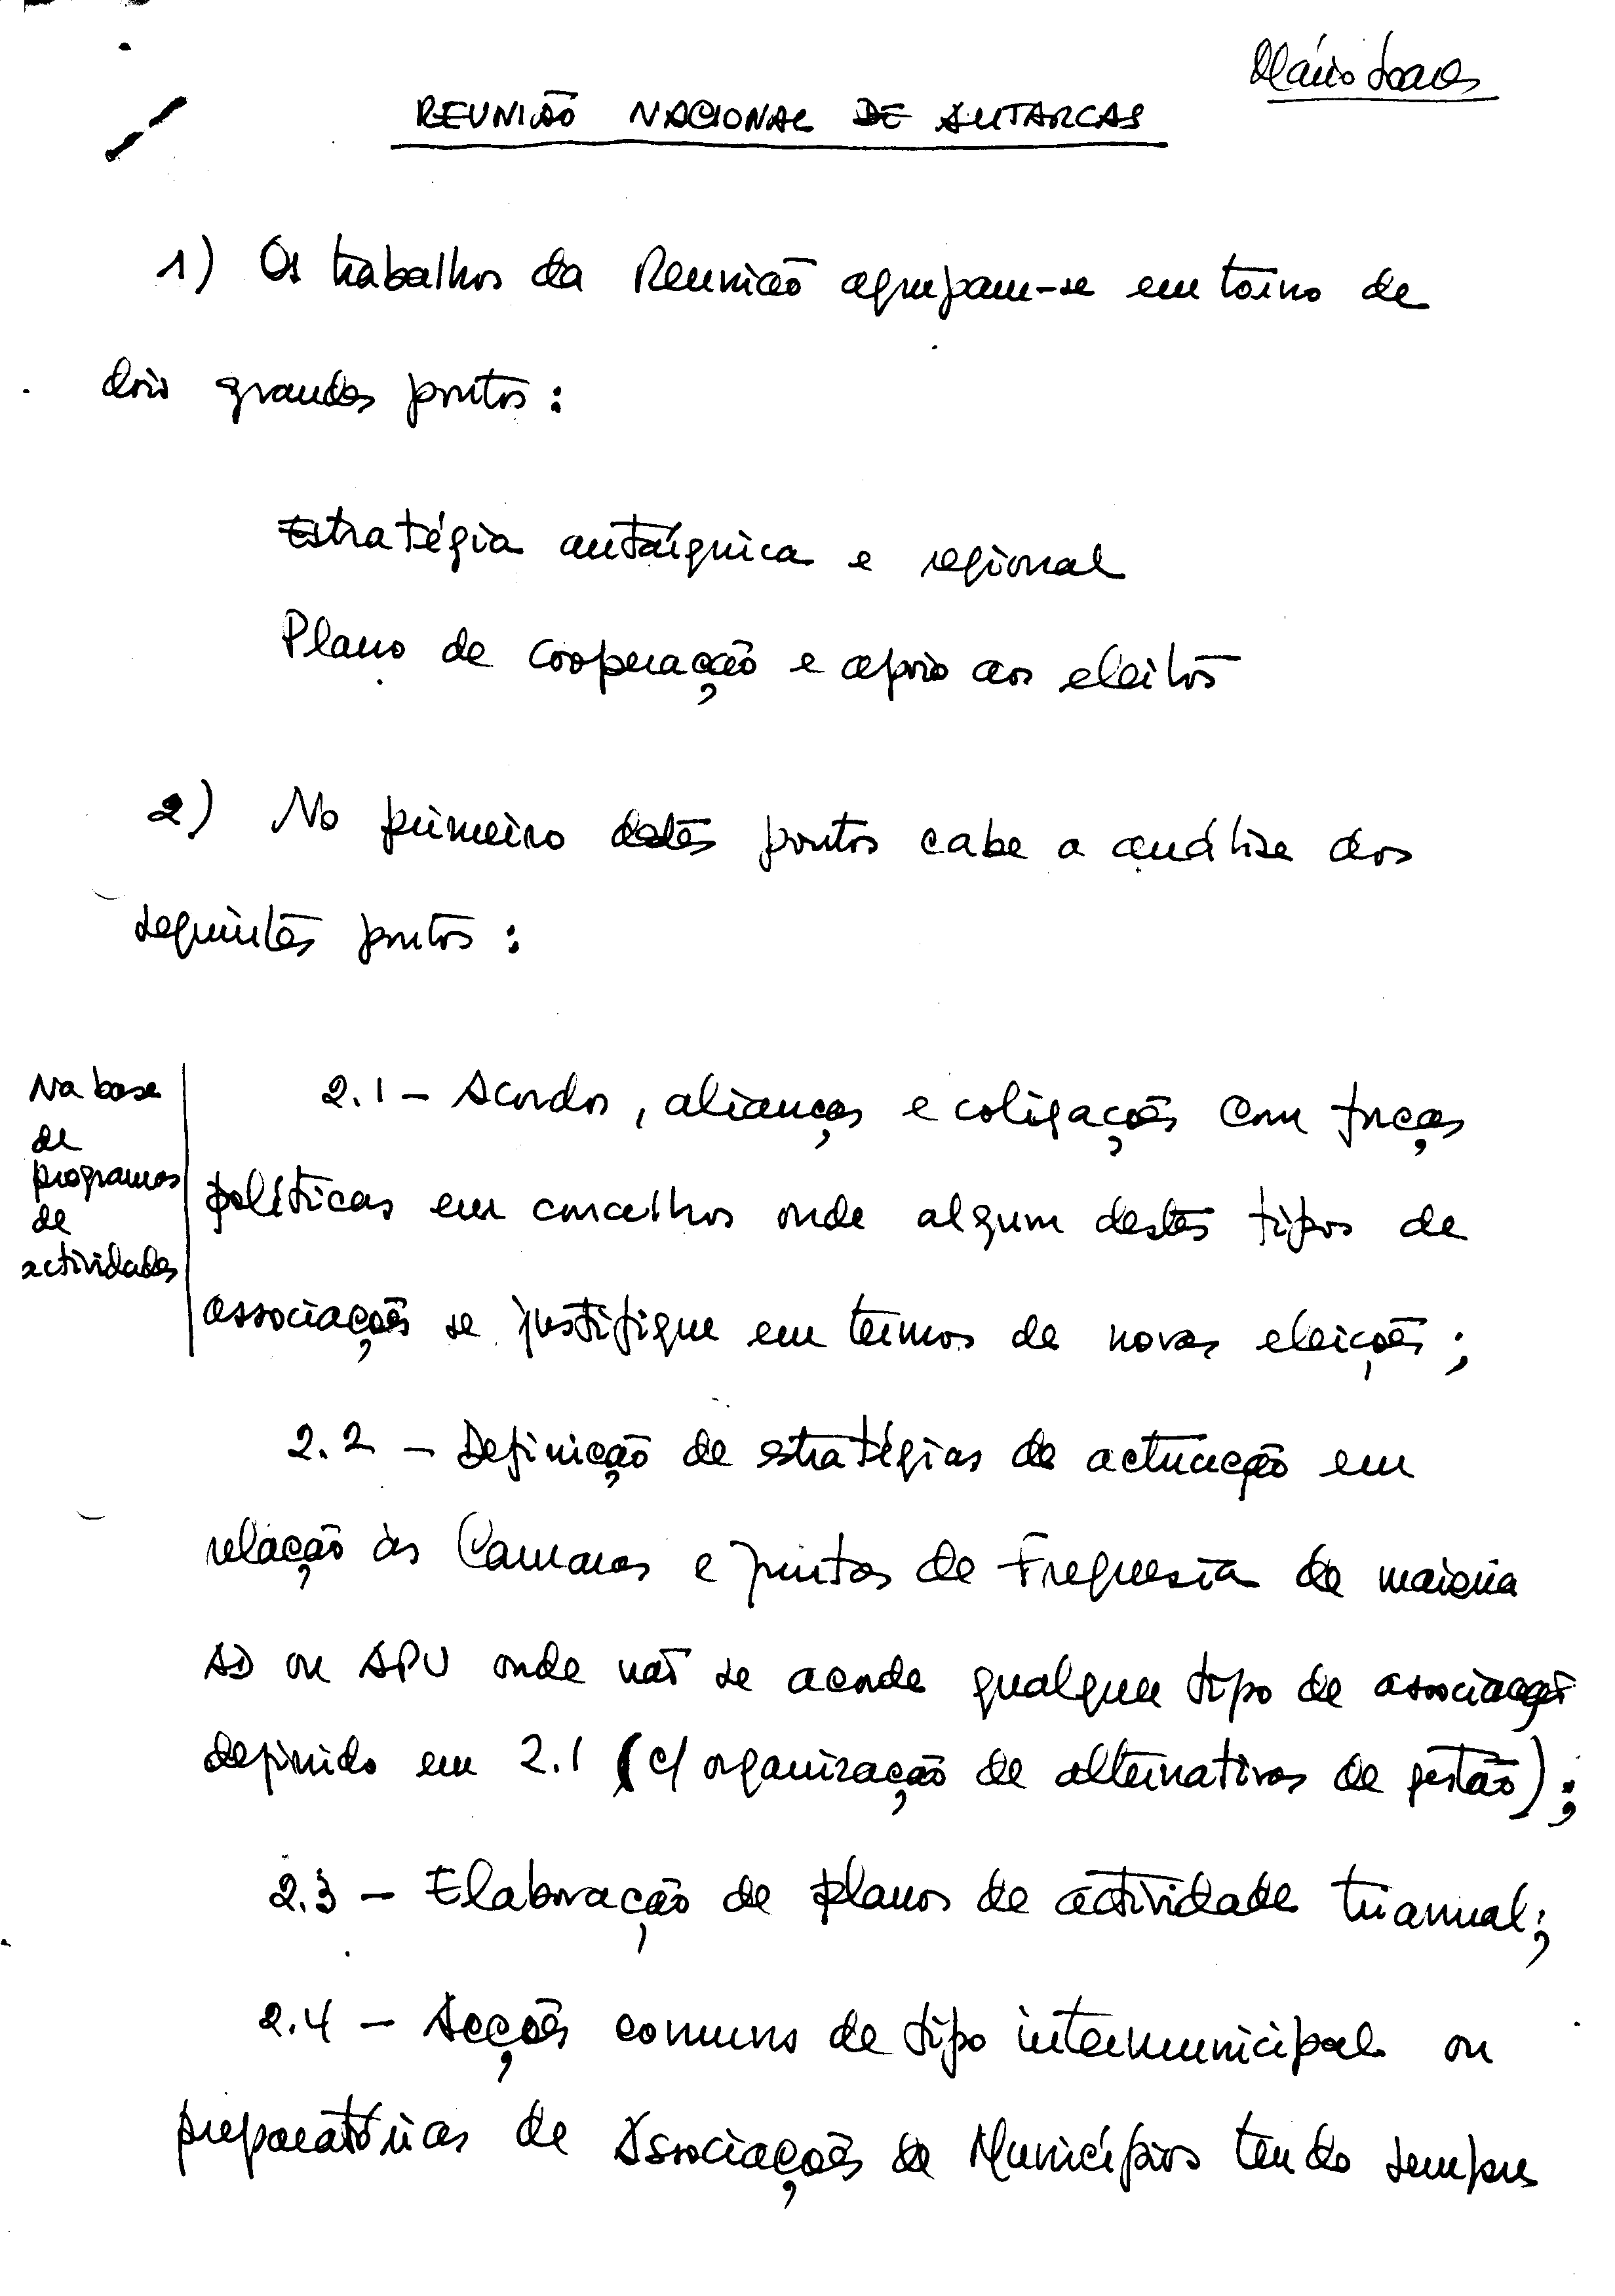 Mário Soares
REUNIÃO NACIONAL DE AUTARCAS
1) Os trabalhos da Reunião agrupam-se em torno de
dois grandes pontos:
Estratégia autárquica e regional
Plano de cooperação e apoio aos eleitos
2) No primeiro destes pontos cabe a análise dos
seguintes pontos:
Na base
de
programas
de
actividades
2.1 - Acordos, alianças e coligações com forças
políticas em concelhos onde algum destes tipos de
associações se justifique em termos de novas eleições;
2.2 - Definição de estratégias de actuação em
relação às Camaras e Juntas de Freguesia de maioria
AD ou APU onde não se acorde qualquer tipo de associação
definido em 2.1 (c/ organização de alternativas de gestão);
2.3 - Elaboração de planos de actividade trianual;
2.4 - Acções comuns de tipo intermunicipal ou
preparatórias de Associações de Municípios tendo sempre